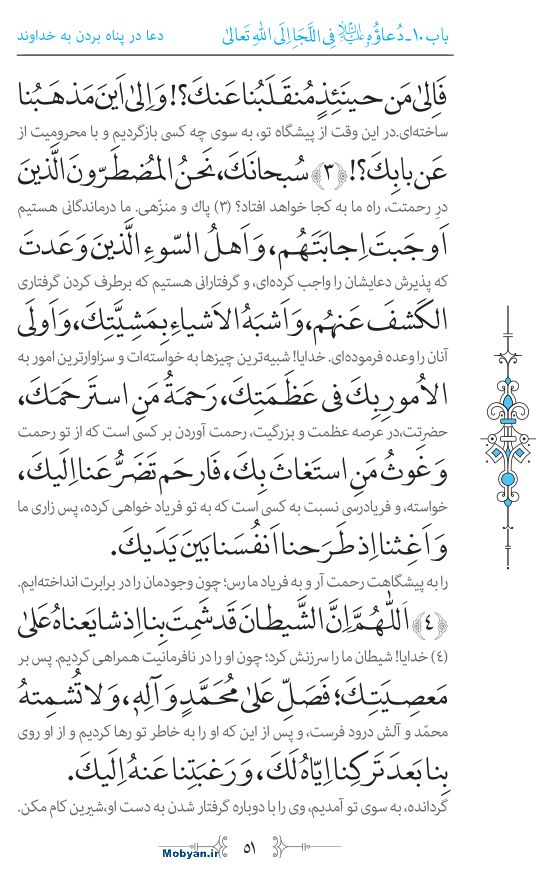 باب ۱۰ـ دُعاؤُهُ عليه‌السلام فِى اللَّجَإِ اِلَى اللهِ تَعالىٰ
دعا در پناه بردن به خداوند
فَاِلىٰ مَن حينَئِذٍ مُنقَلَبُنا عَنكَ؟! وَ اِلىٰ اَينَ مَذهَبُنا
ساخته‌ای.در این وقت از پیشگاه تو، به سوی چه کسی بازگردیم و با محرومیت از
عَن بابِكَ؟! ﴿٣﴾ سُبحانَكَ، نَحنُ المُضطَرّونَ الَّذينَ
درِ رحمتت، راه ما به کجا خواهد افتاد؟ (۳) پاک و منزّهی. ما درماندگانی هستیم
اَوجَبتَ اِجابَتَهُم، وَ اَهلُ السّوءِ الَّذينَ وَعَدتَ
که پذیرش دعایشان را واجب کرده‌ای، و گرفتارانی هستیم که برطرف کردن گرفتاری
الكَشفَ عَنهُم، وَ اَشبَهُ الاَشياءِ بِمَشِيَّتِكَ، وَ اَولَى
آنان را وعده فرموده‌ای. خدایا! شبیه‌ترین چیزها به خواسته‌ات و سزاوارترین امور به
الاُمورِ بِكَ فى عَظَمَتِكَ، رَحمَةُ مَنِ استَرحَمَكَ،
حضرتت،در عرصه عظمت و بزرگیت، رحمت آوردن بر کسی است که از تو رحمت
وَ غَوثُ مَنِ استَغاثَ بِكَ، فَارحَم تَضَرُّعَنا اِلَيكَ،
خواسته، و فریادرسی نسبت به کسی است که به تو فریاد خواهی کرده، پس زاری ما
وَ اَغِثنا اِذ طَرَحنا اَنفُسَنا بَينَ يَدَيكَ.
را به پیشگاهت رحمت آر و به فریاد ما رس؛ چون وجودمان را در برابرت انداخته‌ایم.
﴿٤﴾ اَللّٰهُمَّ اِنَّ الشَّيطانَ قَد شَمِتَ بِنا اِذ شايَعناهُ عَلىٰ
(۴) خدایا! شیطان ما را سرزنش کرد؛ چون او را در نافرمانیت همراهی کردیم. پس بر
مَعصِيَتِكَ؛ فَصَلِّ عَلىٰ مُحَمَّدٍ وَ آلِهِ، وَ لا تُشمِتهُ
محمّد و آلش درود فرست، و پس از این که او را به خاطر تو رها کردیم و از او روی
بِنا بَعدَ تَركِنا اِيّاهُ لَكَ، وَ رَغبَتِنا عَنهُ اِلَيكَ.
گردانده، به سوی تو آمدیم، وی را با دوباره گرفتار شدن به دست او،شیرین کام مکن.
۵۱
Mobyan.ir